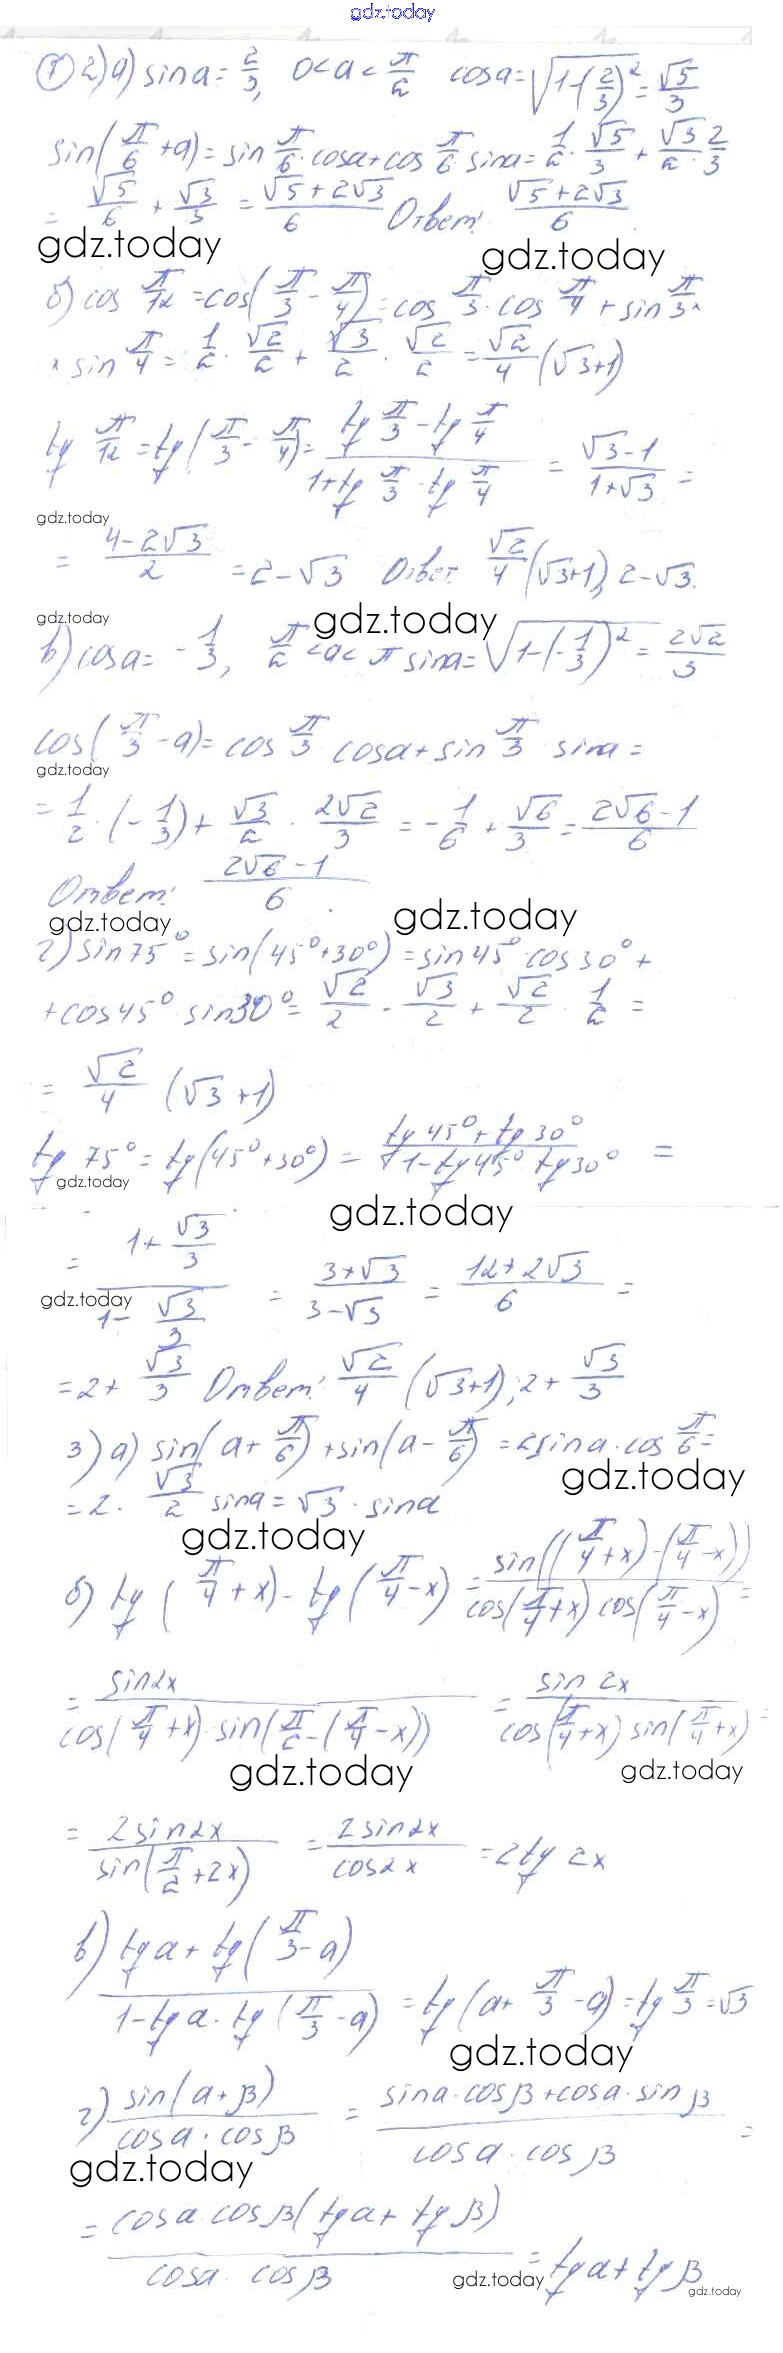 gdz.today
① 2) а) sin a = 2/3, 0 < a < π/2 cos a = √(1-(2/3)²) = √5/3
sin(π/6 + a) = sin π/6 · cos a + cos π/6 · sin a = 1/2 · √5/3 + √3/2 · 2/3
= √5/6 + √3/3 = (√5+2√3)/6 Ответ: (√5+2√3)/6.
gdz.today gdz.today
б) cos π/12 = cos(π/3 - π/4) = cos π/3 · cos π/4 + sin π/3 ×
× sin π/4 = 1/2 · √2/2 + √3/2 · √2/2 = √2/4 (√3+1)
tg π/12 = tg(π/3 - π/4) = (tg π/3 - tg π/4)/(1+tg π/3 · tg π/4) = (√3-1)/(1+√3) =
gdz.today
= (4-2√3)/2 = 2-√3 Ответ. √2/4 (√3+1), 2-√3.
gdz.today gdz.today
в) cos a = -1/3, π/2 < a < π sin a = √(1-(-1/3)²) = 2√2/3
cos(π/3 - a) = cos π/3 cos a + sin π/3 sin a =
gdz.today
= 1/2 · (-1/3) + √3/2 · 2√2/3 = -1/6 + √6/3 = (2√6-1)/6
Ответ: (2√6-1)/6.
gdz.today gdz.today
г) sin 75° = sin(45°+30°) = sin 45° cos 30° +
+ cos 45° · sin 30° = √2/2 · √3/2 + √2/2 · 1/2 =
= √2/4 (√3+1)
tg 75° = tg(45°+30°) = (tg 45° + tg 30°)/(1-tg 45° tg 30°) =
gdz.today
gdz.today
= (1+√3/3)/(1-√3/3) = (3+√3)/(3-√3) = (12+2√3)/6 =
gdz.today
= 2+ √3/3 Ответ: √2/4 (√3+1); 2+ √3/3
3) а) sin(a+ π/6) + sin(a- π/6) = 2sin a · cos π/6 =
gdz.today
= 2 · √3/2 sin a = √3 · sin a
gdz.today
б) tg(π/4 + x) - tg(π/4 - x) = sin((π/4+x)-(π/4-x))/(cos(π/4+x) cos(π/4-x)) =
= sin 2x/(cos(π/4+x) · sin(π/2-(π/4-x))) = sin 2x/(cos(π/4+x) sin(π/4+x)) =
gdz.today gdz.today
= 2sin 2x/sin(π/2+2x) = 2sin 2x/cos 2x = 2tg 2x
в) (tg a + tg(π/3-a))/(1-tg a · tg(π/3-a)) = tg(a+ π/3 -a) = tg π/3 = √3
gdz.today
г) sin(a+β)/(cos a · cos β) = (sin a · cos β + cos a · sin β)/(cos a · cos β) =
gdz.today
= cos a cos β(tg a + tg β)/(cos a · cos β) = tg a + tg β
gdz.today
gdz.today